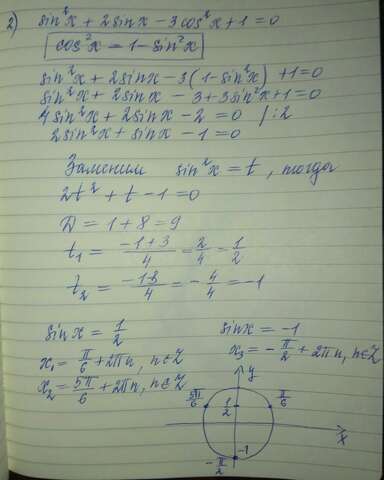 2) sin²x + 2sinx - 3cos²x + 1 = 0
cos²x = 1 - sin²x
sin²x + 2sinx - 3(1 - sin²x) + 1 = 0
sin²x + 2sinx - 3 + 3sin²x + 1 = 0
4sin²x + 2sinx - 2 = 0 /:2
2sin²x + sinx - 1 = 0
Заменим sin²x = t, тогда
2t² + t - 1 = 0
D = 1 + 8 = 9
t₁ = (-1+3)/4 = 2/4 = 1/2
t₂ = (-1-3)/4 = -4/4 = -1
sinx = 1/2
x₁ = π/6 + 2πn, n∈Z
x₂ = 5π/6 + 2πn, n∈Z
sinx = -1
x₃ = -π/2 + 2πn, n∈Z
y
5π/6
1/2
π/6
x
-1
-π/2